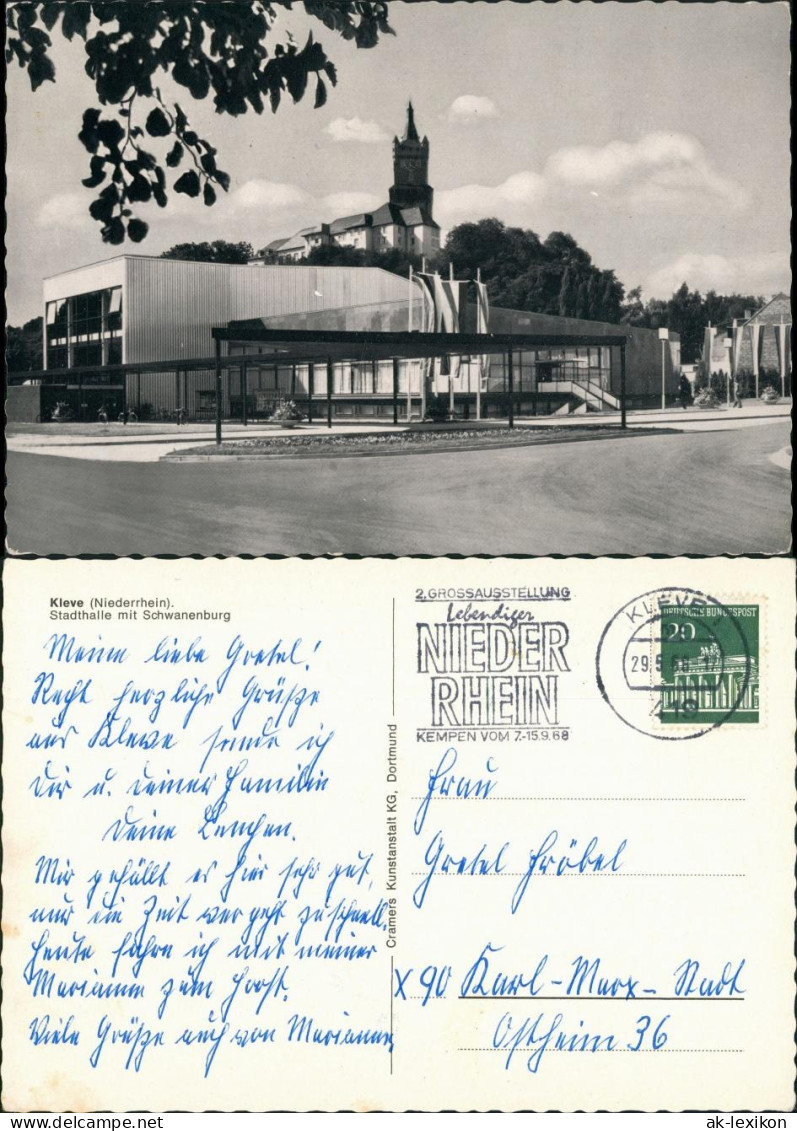 Kleve (Niederrhein).
Stadthalle mit Schwanenburg
Meine liebe Gretel!
Recht herzliche Grüße
aus Kleve sende ich
Dir u. deiner Familie
Deine Lenchen.
Mir gefällt es hier sehr gut,
nur die Zeit vergeht zu schnell.
Heute fahre ich mit meiner
Marianne zum Horst.
Viele Grüße auch von Marianne.
Cramers Kunstanstalt KG, Dortmund
2. GROSSAUSSTELLUNG
Lebendiger
NIEDER
RHEIN
KEMPEN VOM 7.-15.9.68
KLEVE
29.5.68
419
DEUTSCHE BUNDESPOST
20
Frau
Gretel Fröbel
X 90 Karl-Marx-Stadt
Ostheim 36
www.delcampe.net
ak-lexikon